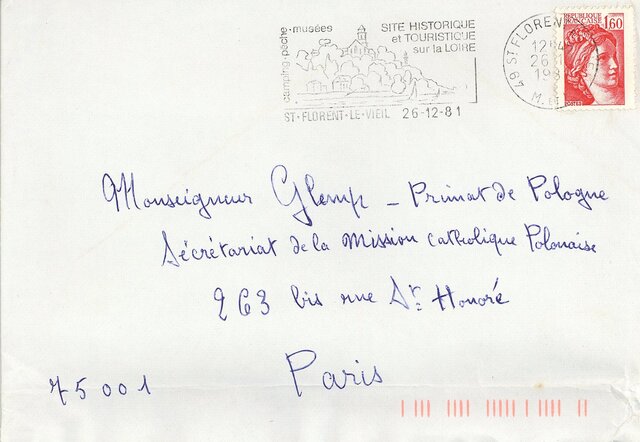 camping-pêche-musées
SITE HISTORIQUE
et TOURISTIQUE
sur la LOIRE
ST-FLORENT-LE-VIEIL 26-12-81
49 ST FLORENT
26
M. ET
REPUBLIQUE
FRANCAISE
1,60
Monseigneur Glemp - Primat de Pologne
Sécrétariat de la Mission Catholique Polonaise
263 bis rue St Honoré
Paris
75001